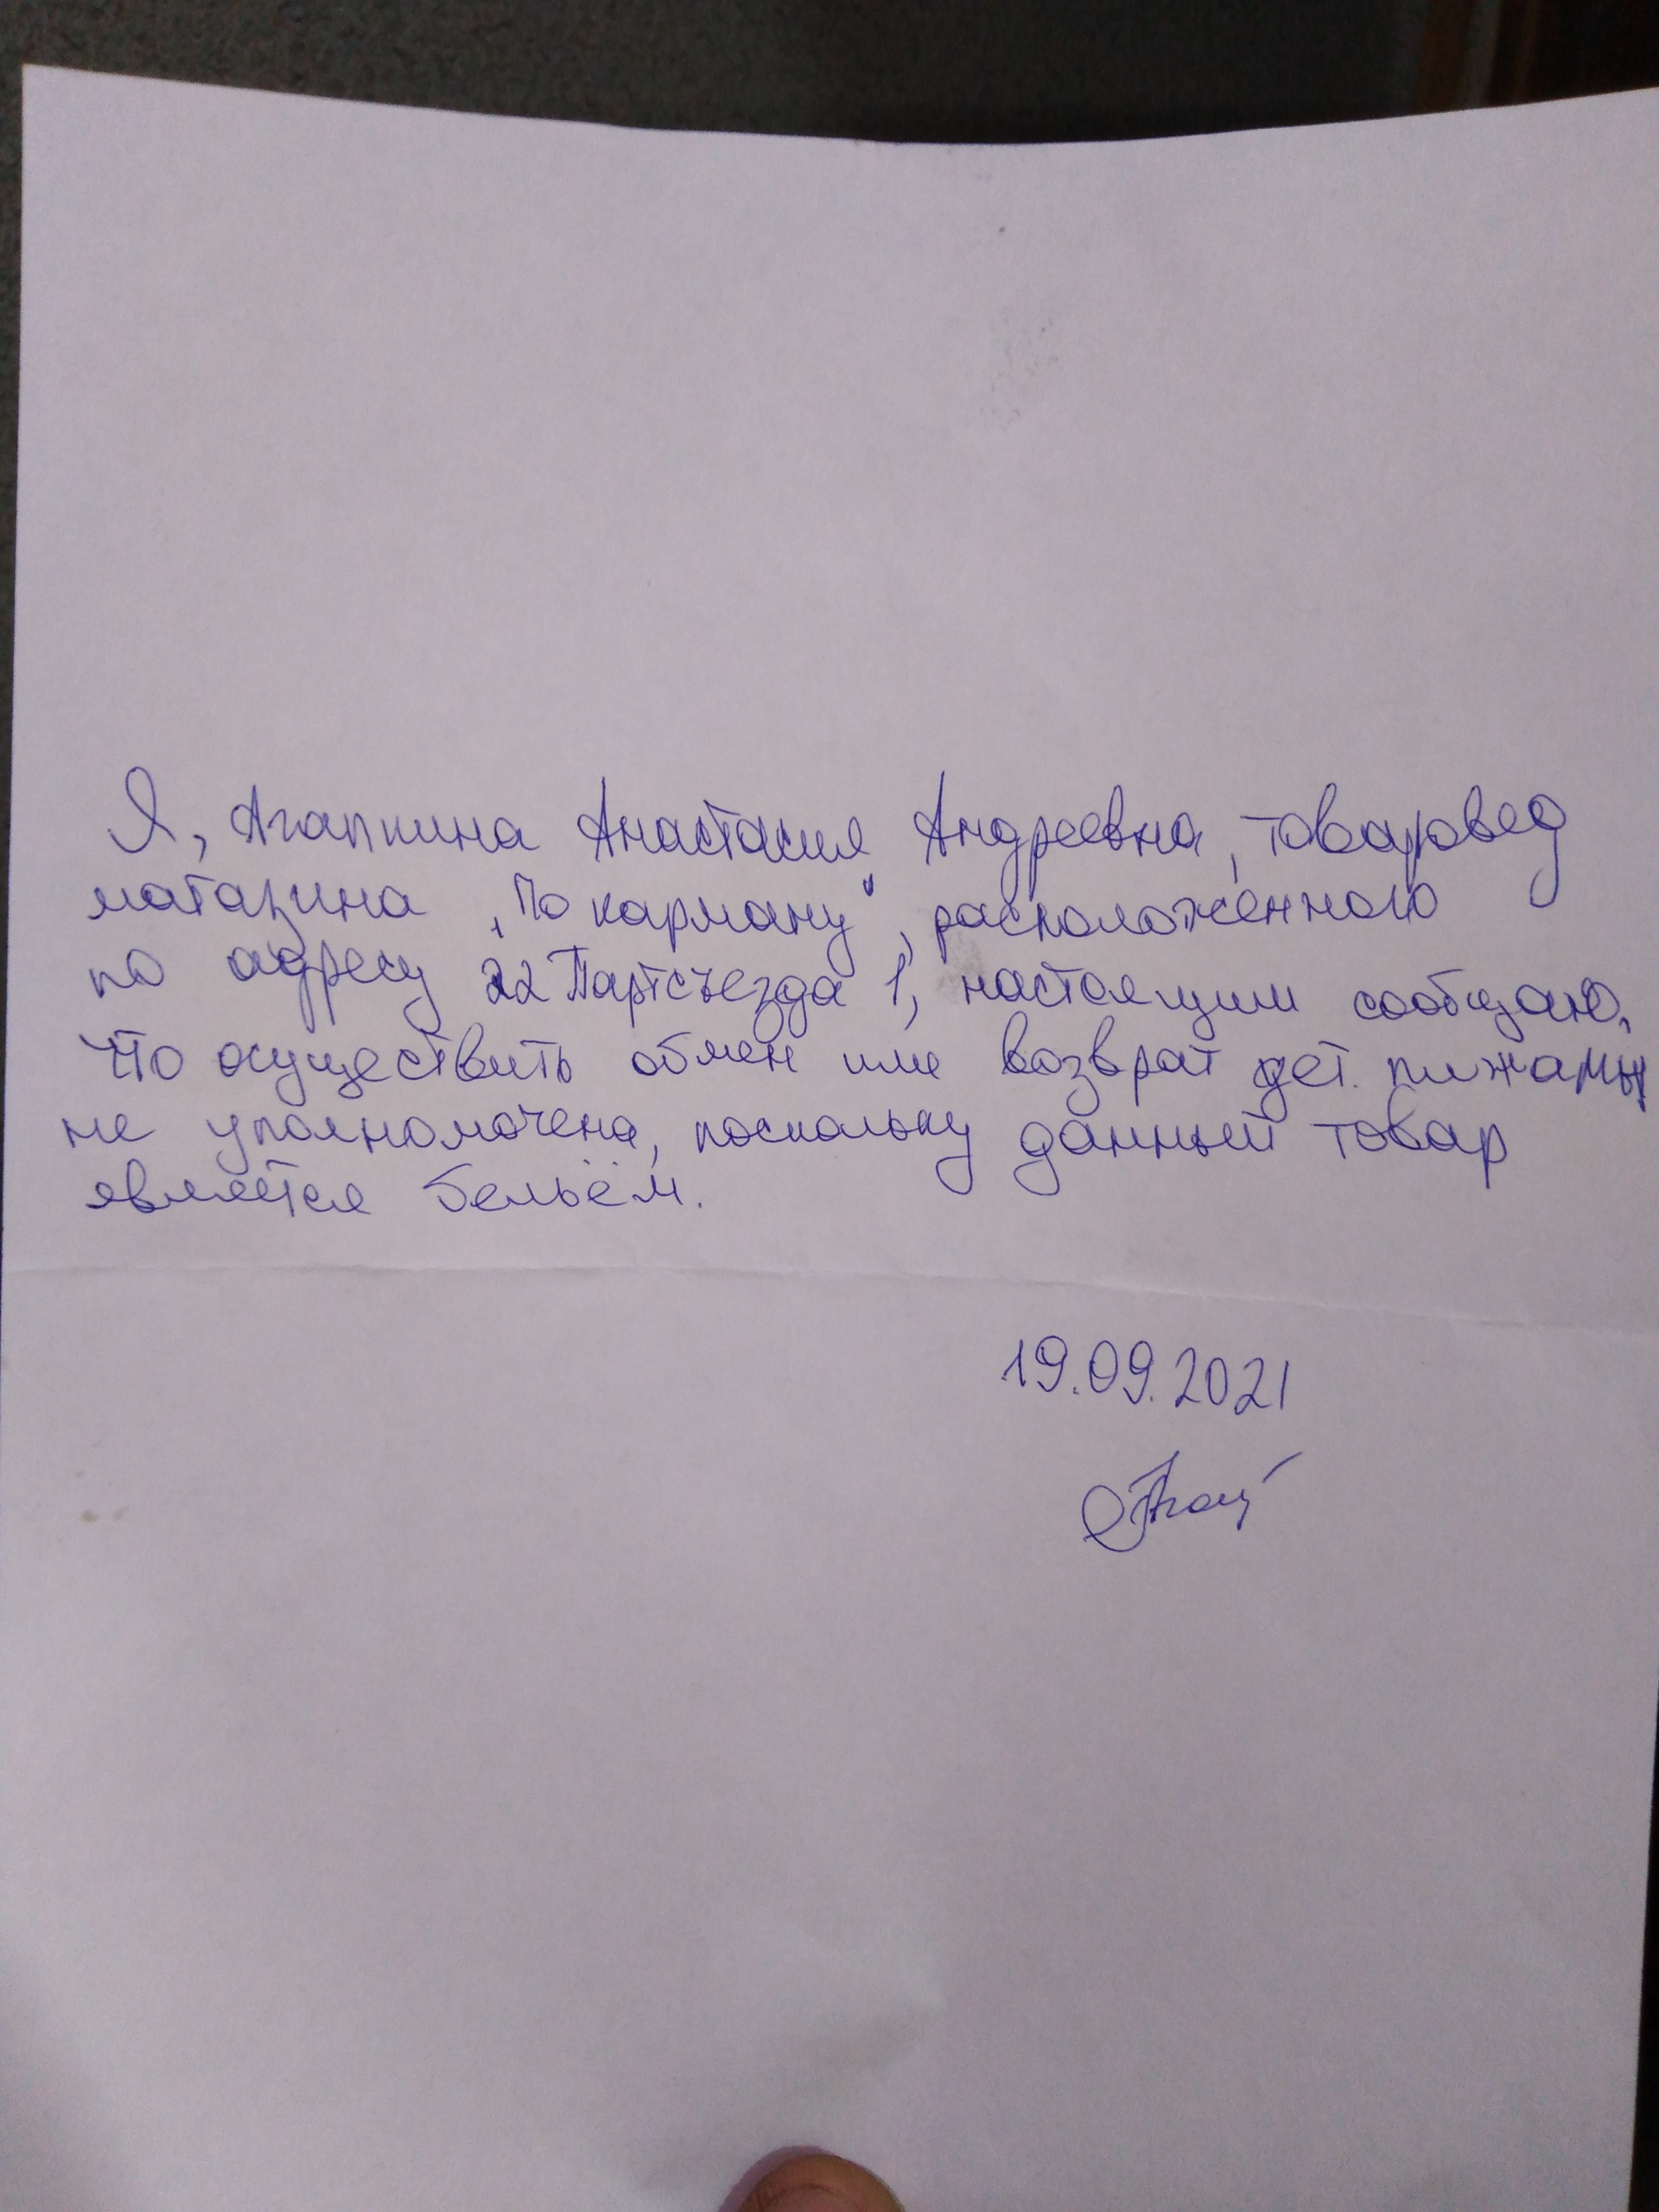 Я, Агапкина Анастасия Андреевна, товаровед
магазина „По карману", расположенного
по адресу 22 Партсъезда 1, настоящим сообщаю,
что осуществить обмен или возврат дет. пижамы
не уполномочена, поскольку данный товар
является бельём.
19.09.2021